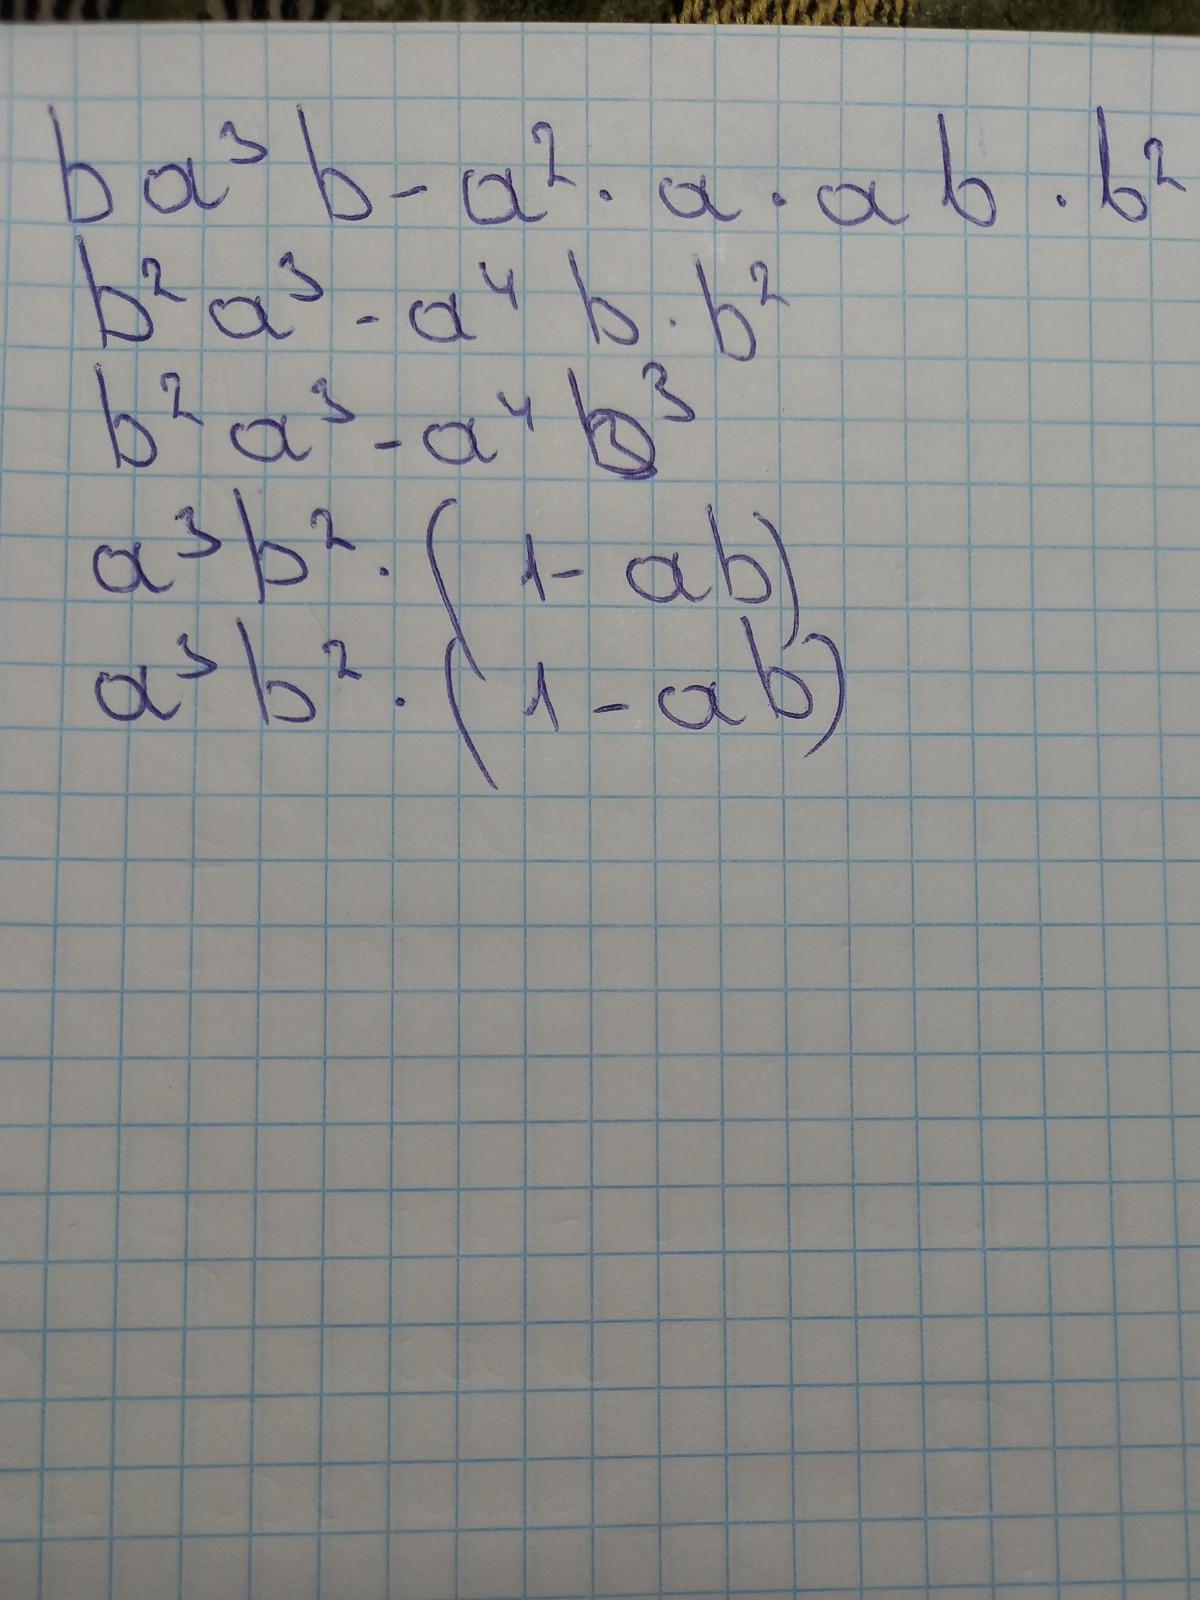 ba³b - a² · a · ab · b²
b²a³ - a⁴b · b²
b²a³ - a⁴b³
a³b² · (1 - ab)
a³b² · (1 - ab)